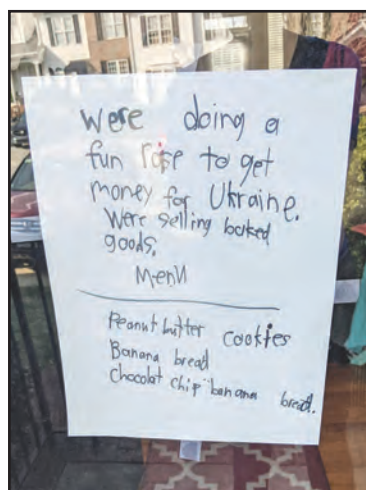 were doing a
fun rase to get
money for Ukraine.
Were selling baked
goods.
Menu
Peanut butter cookies
Banana bread
Chocolat chip banana bread.